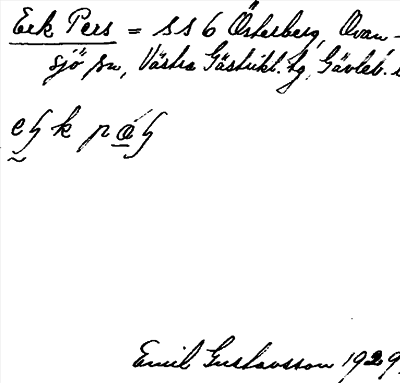 Erk Pers = SS 6 Österberg, Ovan-
sjö sn, Västra Gästrikl. tg, Gävleb.
Emil Gustavsson 1929